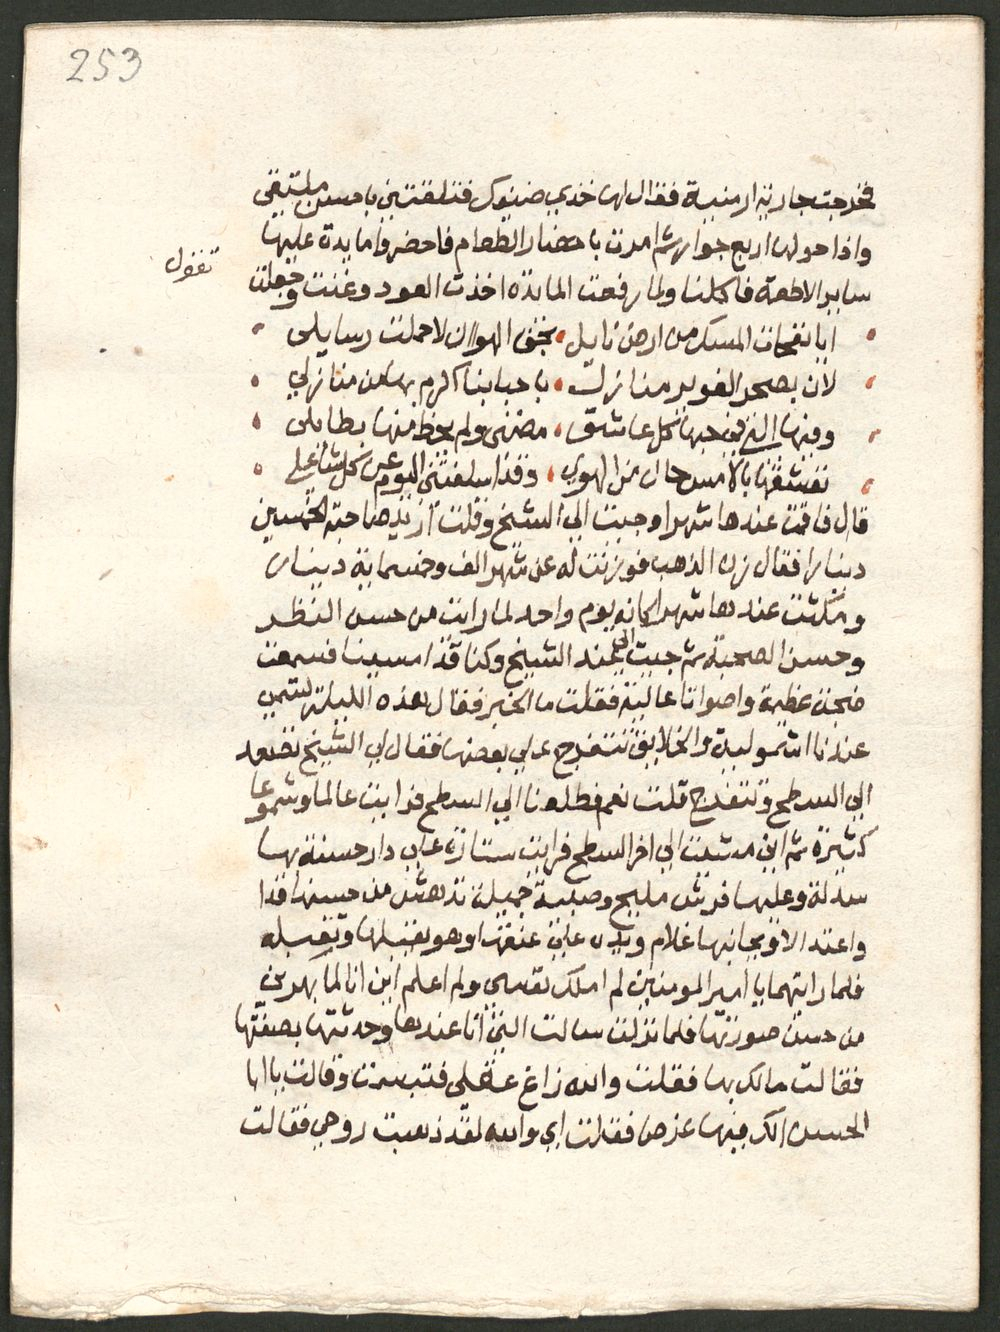 253
فخرجت جارية ارمنية فقال لها خذي ضيفك فتلقتني باحسن ملتقى
واذا حولها اربع جوار ثم امرت باحضار الطعام فاحضروا مايدة عليها
ساير الاطعمة فاكلنا ولما رفعت المايدة اخذت العود وغنت وجعلت
تقول
ايا نفحات المسك من ارض بابل بحق الهوا ان لا حملت رسايلي
لان بصحر الغوير منازلا باحبابنا اكرم بها من منازل
وفيها التي في حبها كل عاشق مضنى ولم يحظ منها بطايل
تعشقتها بالامس حال من الهوى وقد اسلفتني اليوم عن كل شاغل
قال فاقمت عندها شهرا وجيت الي الشيخ وقلت اريد صاحبة الخمسين
دينارا فقال زن الذهب فوزنت له عن شهر الف وخمسماية دينار
ومكثت عندها شهرا كانه يوم واحد لما رايت من حسن النظر
وحسن الصحبة ثم جيت الي عند الشيخ وكنا قد امسينا فسمعت
ضجة عظيمة واصواتا عالية فقلت ما الخبر فقال هذه الليلة تسمى
عندنا اشموليدة والخلايق تتفرج علي بعضها فقال لي الشيخ تصعد
الي السطح وتتفرج قلت نعم فطلعنا الي السطح فرايت عالما وشموعا
كثيرة ثم اني مشيت الي اخر السطح فرايت ستارة علي دار حسنة بها
سدلة وعليها فرش مليح وصبية جميلة تدهش من حسنها قدا
واعتدالا وبجانبها غلام ويده علي عنقها وهو يقبلها وتقبله
فلما رايتهما يا امير المومنين لم املك نفسي ولم اعلم اين انا لما بهرني
من حسن صورتها فلما نزلت سالت التي انا عندها وحدثتها بصفتها
فقالت مالك بها فقلت والله زاغ عقلي فتبسمت وقالت يا ابا
الحسن الك فيها غرض فقلت اي والله لقد ذهبت روحي فقالت